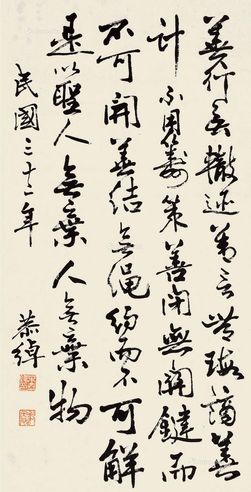 善行無轍迹善言無瑕謫善
計不用籌策善閉無關鍵而
不可開善結無繩約而不可解
是以聖人無棄人無棄物
民國三十二年 恭綽